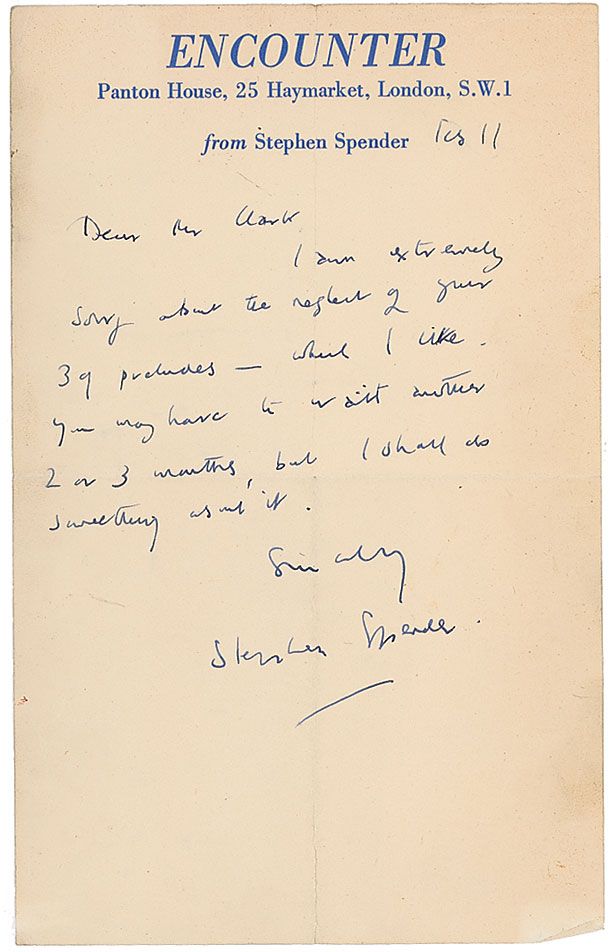 ENCOUNTER
Panton House, 25 Haymarket, London, S.W.1
from Stephen Spender Feb 11
Dear Mr Clark
I am extremely
sorry about the neglect of your
39 preludes — which I like.
You may have to wait another
2 or 3 months, but I shall do
something about it.
Sincerely
Stephen Spender.